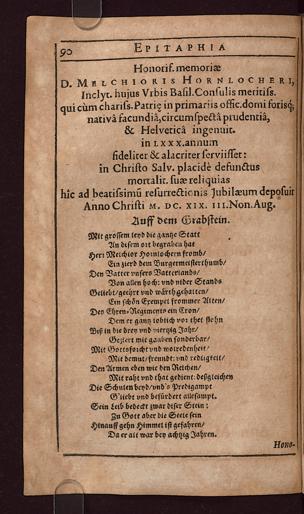 90 EPITAPHIA
Honorif. memoriæ
D. MELCHIORIS HORNLOCHERI,
Inclyt. hujus Vrbis Basil. Consulis meritiss.
qui cùm chariss. Patrię in primariis offic. domi forisq́;
nativâ facundiâ, circumspectâ prudentiâ,
& Helveticâ ingenuit.
in LXXX. annum
fideliter & alacriter serviisset:
in Christo Salv. placidè defunctus
mortalit. suæ reliquias
hîc ad beatissimũ resurrectionis Jubilæum deposuit
Anno Christi M. DC. XIX. III. Non. Aug.
Auff dem Grabstein.
Mit grossem leyd die gantze Statt
An disem ort begraben hat
Herꝛ Melchior Hornlochern fromb/
Ein zierd dem Burgermeisterthumb/
Den Vatter vnsers Vatterlands/
Von allen hoch: vnd nider Stands
Geliebt/ geehrt vnd wärth gehalten/
Ein schön Exempel frommer Alten/
Des Ehren-Regiments ein Cron/
Dem er gantz loblich vor thet stehn
Biß in die drey vnd viertzig Jahr/
Geziert mit gaaben sonderbar/
Mit Gottsforcht vnd wolredenheit/
Mit demut/ freundt: vnd redligkeit/
Den Armen eben wie den Reichen/
Mit raht vnd that gedient: deßgleichen
Die Schulen beyd/ vnd's Predigampt
G'liebt vnd befürdert allesampt.
Sein Leib bedeckt zwar diser Stein:
Zu Gott aber die Seele sein
Hinauff gehn Himmel ist gefahren/
Da er alt war bey achtzig Jahren.
Hono-